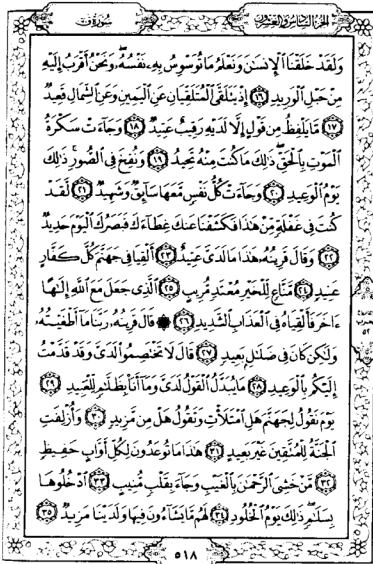 الجزء السادس والعشرون
سورة ق
وَلَقَدْ خَلَقْنَا ٱلْإِنسَٰنَ وَنَعْلَمُ مَا تُوَسْوِسُ بِهِۦ نَفْسُهُۥ ۖ وَنَحْنُ أَقْرَبُ إِلَيْهِ
مِنْ حَبْلِ ٱلْوَرِيدِ ١٦ إِذْ يَتَلَقَّى ٱلْمُتَلَقِّيَانِ عَنِ ٱلْيَمِينِ وَعَنِ ٱلشِّمَالِ قَعِيدٌ
١٧ مَّا يَلْفِظُ مِن قَوْلٍ إِلَّا لَدَيْهِ رَقِيبٌ عَتِيدٌ ١٨ وَجَآءَتْ سَكْرَةُ
ٱلْمَوْتِ بِٱلْحَقِّ ۖ ذَٰلِكَ مَا كُنتَ مِنْهُ تَحِيدُ ١٩ وَنُفِخَ فِى ٱلصُّورِ ۚ ذَٰلِكَ
يَوْمُ ٱلْوَعِيدِ ٢٠ وَجَآءَتْ كُلُّ نَفْسٍ مَّعَهَا سَآئِقٌ وَشَهِيدٌ ٢١ لَّقَدْ
كُنتَ فِى غَفْلَةٍ مِّنْ هَٰذَا فَكَشَفْنَا عَنكَ غِطَآءَكَ فَبَصَرُكَ ٱلْيَوْمَ حَدِيدٌ
٢٢ وَقَالَ قَرِينُهُۥ هَٰذَا مَا لَدَىَّ عَتِيدٌ ٢٣ أَلْقِيَا فِى جَهَنَّمَ كُلَّ كَفَّارٍ
عَنِيدٍ ٢٤ مَّنَّاعٍ لِّلْخَيْرِ مُعْتَدٍ مُّرِيبٍ ٢٥ ٱلَّذِى جَعَلَ مَعَ ٱللَّهِ إِلَٰهًا
ءَاخَرَ فَأَلْقِيَاهُ فِى ٱلْعَذَابِ ٱلشَّدِيدِ ٢٦ ۞ قَالَ قَرِينُهُۥ رَبَّنَا مَآ أَطْغَيْتُهُۥ
وَلَٰكِن كَانَ فِى ضَلَٰلٍۭ بَعِيدٍ ٢٧ قَالَ لَا تَخْتَصِمُوا۟ لَدَىَّ وَقَدْ قَدَّمْتُ
إِلَيْكُم بِٱلْوَعِيدِ ٢٨ مَا يُبَدَّلُ ٱلْقَوْلُ لَدَىَّ وَمَآ أَنَا۠ بِظَلَّٰمٍ لِّلْعَبِيدِ ٢٩
يَوْمَ نَقُولُ لِجَهَنَّمَ هَلِ ٱمْتَلَأْتِ وَتَقُولُ هَلْ مِن مَّزِيدٍ ٣٠ وَأُزْلِفَتِ
ٱلْجَنَّةُ لِلْمُتَّقِينَ غَيْرَ بَعِيدٍ ٣١ هَٰذَا مَا تُوعَدُونَ لِكُلِّ أَوَّابٍ حَفِيظٍ
٣٢ مَّنْ خَشِىَ ٱلرَّحْمَٰنَ بِٱلْغَيْبِ وَجَآءَ بِقَلْبٍ مُّنِيبٍ ٣٣ ٱدْخُلُوهَا
بِسَلَٰمٍ ۖ ذَٰلِكَ يَوْمُ ٱلْخُلُودِ ٣٤ لَهُم مَّا يَشَآءُونَ فِيهَا وَلَدَيْنَا مَزِيدٌ ٣٥
٥١٨